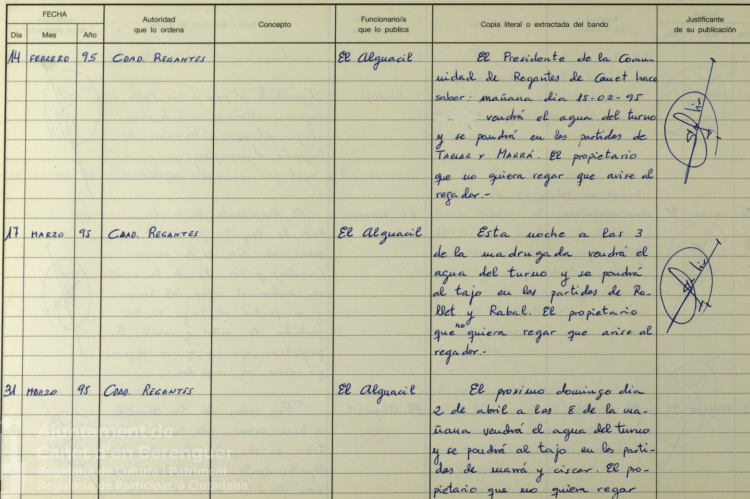 FECHA
Día Mes Año
Autoridad
que lo ordena
Concepto
Funcionario/a
que lo publica
Copia literal o extractada del bando
Justificante
de su publicación
14 FEBRERO 95 CDAD. REGANTES El Alguacil
El Presidente de la Comu-
nidad de Regantes de Canet hace
saber: mañana dia 15-02-95
vendrá el agua del turno
y se pondrá en los partidos de
TABLAR Y MARRÁ. El propietario
que no quiera regar que avise al
regador.-
17 MARZO 95 CDAD. REGANTES El Alguacil
Esta noche a las 3
de la madrugada vendrá el
agua del turno y se pondrá
al tajo en los partidos de Ro-
llet y Rabal. El propietario
que no quiera regar que avise al
regador.-
31 MARZO 95 CDAD. REGANTES El Alguacil
El proximo domingo dia
2 de abril a las 8 de la ma-
ñana vendrá el agua del turno
y se pondrá al tajo en los parti-
dos de marrá y ciscar. El pro-
pietario que no quiera regar
Ajuntament de
Canet d'en Berenguer
Regidoria de Cultura i Patrimoni
Regidoria de Participació Ciutadana